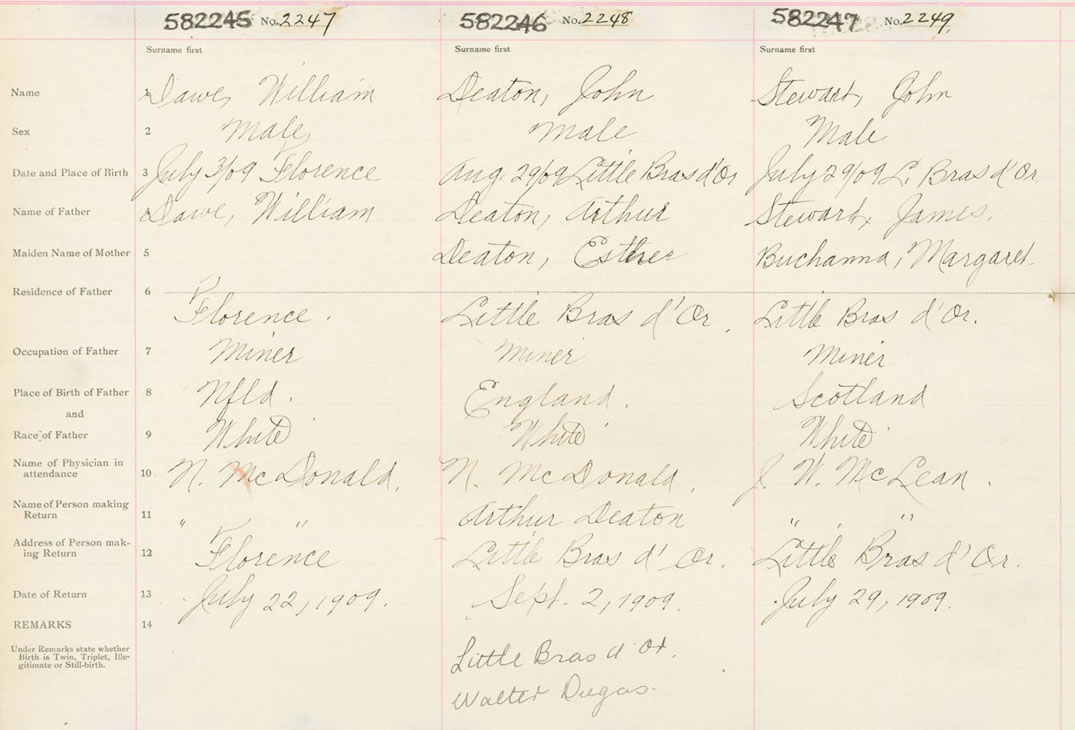 582245 No. 2247 582246 No. 2248 582247 No. 2249
Surname first Surname first Surname first
Name 1 Dawe, William Deaton, John Stewart, John
Sex 2 Male, Male Male
Date and Place of Birth 3 July 3/09 Florence Aug. 29/09 Little Bras d'Or July 29/09 L. Bras d'Or.
Name of Father 4 Dawe, William Deaton, Arthur Stewart, James.
Maiden Name of Mother 5 Deaton, Esther Buchanna, Margaret.
Residence of Father 6
Florence. Little Bras d'Or. Little Bras d'Or.
Occupation of Father 7 Miner Miner Miner
Place of Birth of Father 8 Nfld. England. Scotland
and
Race of Father 9 White White White
Name of Physician in
attendance 10 N. McDonald. N. McDonald. J. W. McLean.
Name of Person making
Return 11 " " Arthur Deaton " "
Address of Person mak-
ing Return 12 Florence Little Bras d'Or. Little Bras d'Or.
Date of Return 13 July 22, 1909. Sept. 2, 1909. July 29, 1909.
REMARKS 14
Under Remarks state whether
Birth is Twin, Triplet, Ille-
gitimate or Still-birth.
Little Bras d'Or.
Walter Dugas.